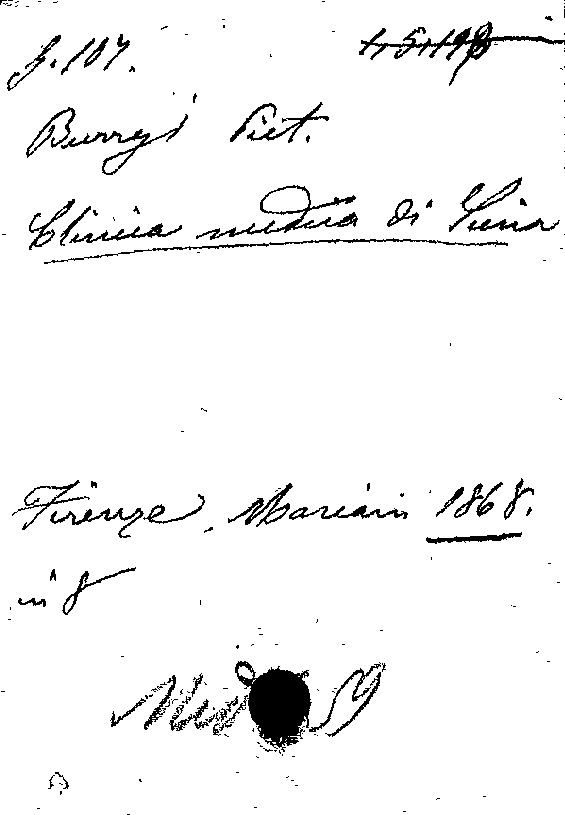 G. 107. 1,5,198
Burresi Piet.
Clinica medica di Siena
Firenze, Mariani 1868.
in 8
59